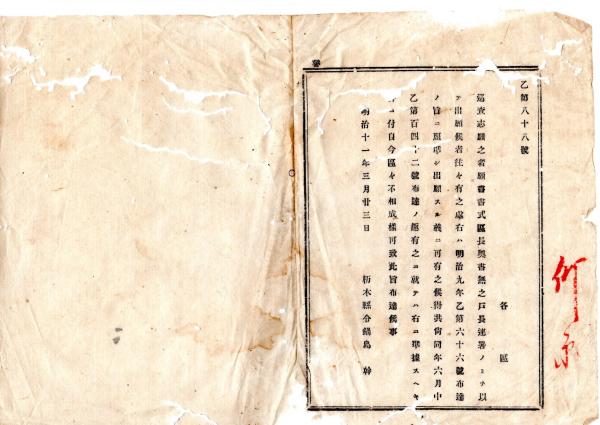 乙第八十八號
各區
巡査志願之者願書書式區長奧書無之戸長連署ノミヲ以
テ出願候者往々有之處右ハ明治九年乙第六十六號布達
ノ旨ニ照準シ出願スル義ニ可有之候得共尚同年六月中
乙第百四十二號布達ノ趣有之ニ就テハ右ニ準據スヘキ
ニ付自今區々不相成樣可致此旨布達候事
明治十一年三月廿三日
栃木縣令鍋島幹